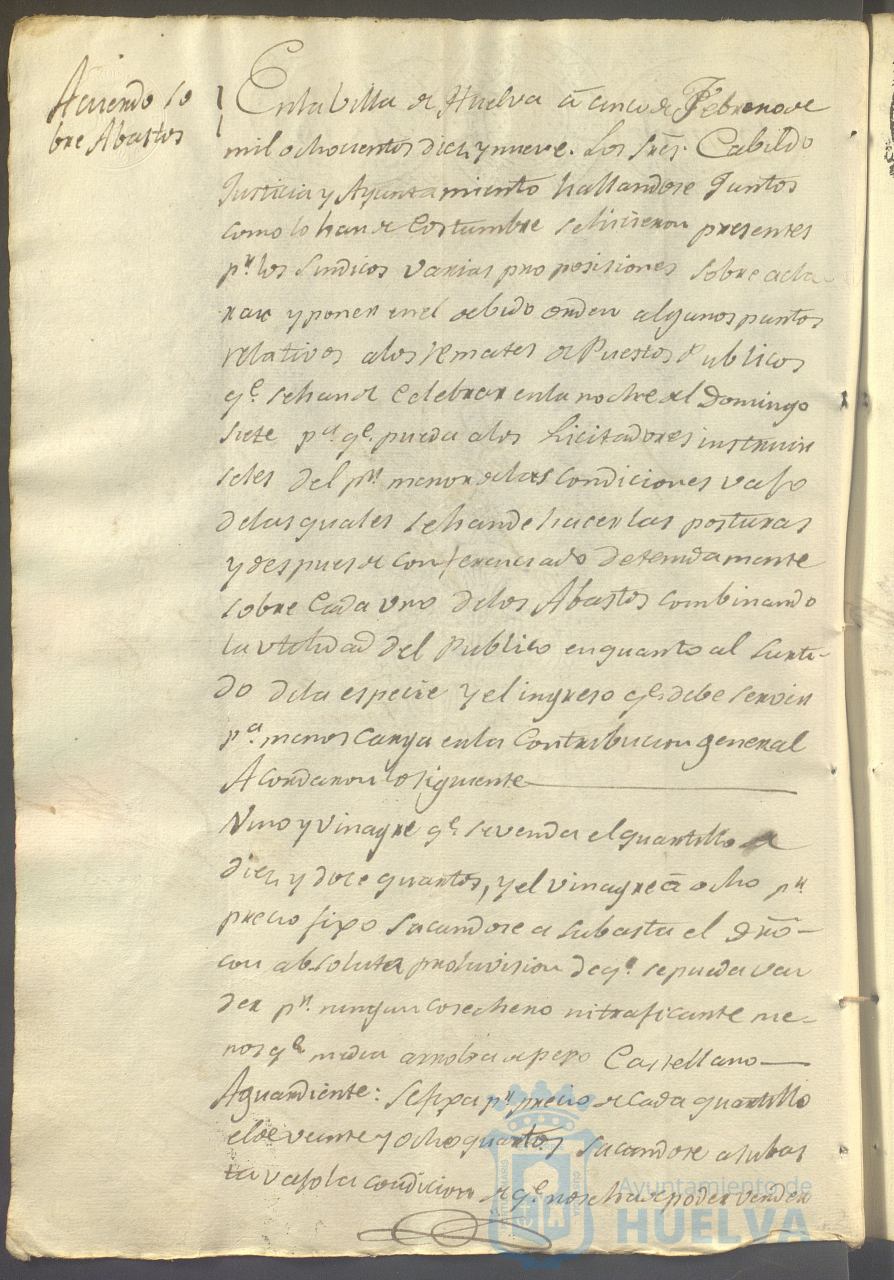 Acuerdo so
bre Abastos
En la Villa de Huelva â cinco de Febrero de
mil ochocientos diez y nueve. Los Sres. Cabildo
Justicia y Ayuntamiento hallandose Juntos
como lo han de Costumbre se hicieron presentes
pr. los Sindicos varias proposisiones sobre acla-
rar y poner en el debido orden algunos puntos
relativos a los remates de Puestos Publicos
qe. se han de Celebrar en la noche del Domingo
siete pa. qe. pueda a los Licitadores instruir
seles del pr. menor de las condiciones vajo
de las quales se han de hacer las posturas
y despues de conferenciado detenidamente
sobre Cada uno de los Abastos combinando
la utilidad del Publico en quanto al surti-
do de la especie y el ingreso qe. debe servir
pa. menos carga en la Contribucion general
Acordaron lo siguiente
Vino y vinagre qe. se venda el quartillo a
diez y doce quartos, y el vinagre â ocho pr.
precio fixo sacandose a subasta el dro.
con absoluta prohivision de qe. se pueda ven
der pr. ningun cosechero ni traficante me-
nos qe. media arroba de peso Castellano
Aguardiente: Se fixa pr. precio de cada quartillo
el de veinte y ocho quartos sacandose a subas
ta vajo la condicion de qe. no se ha de poder vender
Ayuntamiento de
HUELVA